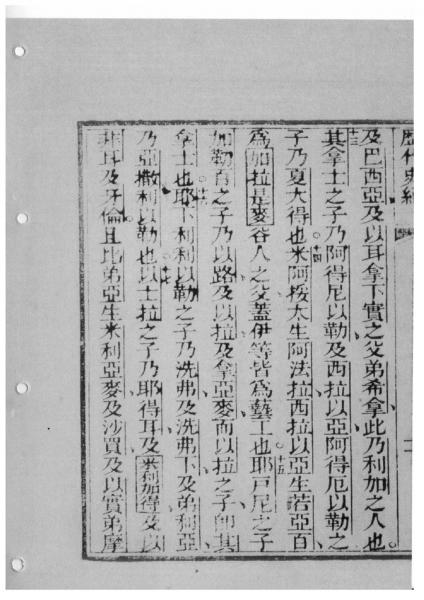 歷代史紀
及巴西亞及以耳拿下實之父弟希拿此乃利加之人也
十三其拿士之子乃阿得尼以勒及西拉以亞阿得厄以勒之
子乃夏大得也十四米阿挼太生阿法拉西拉以亞生若亞百
為加拉是麥谷人之父蓋伊等皆為藝工也十五耶戸尼之子
加勒百之子乃以路及以拉及拿亞麥而以拉之子即其
拿士也十六耶下利利以勒之子乃洗弗及洗弗下及弟利亞
乃亞撒利以勒也十七以士拉之子乃耶得耳及米利加得及以
非耳及牙倫且比弟亞生米利亞麥及沙買及以實弟摩